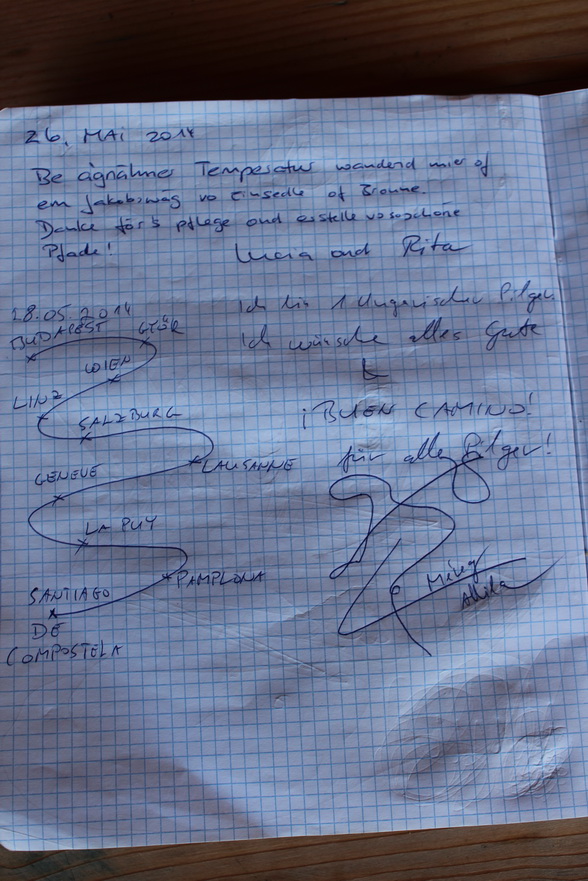 26. MAI 2014
Be ágnähmer Temperatur wanderd mier of
em Jakobswäg vo Einsedle of Bronne.
Danke för's pflege ond erstelle vo so schöne
Pfade!
Lucia ond Rita
28.05.2014
BUDAPEST
GYŐR
WIEN
LINZ
SALZBURG
LAUSANNE
GENEVE
LA PUY
PAMPLONA
SANTIAGO
DE
COMPOSTELA
Ich bin 1 Ungarischer Pilger.
Ich wünsche alles Gute
¡BUEN CAMINO!
für alle Pilger!
Attila